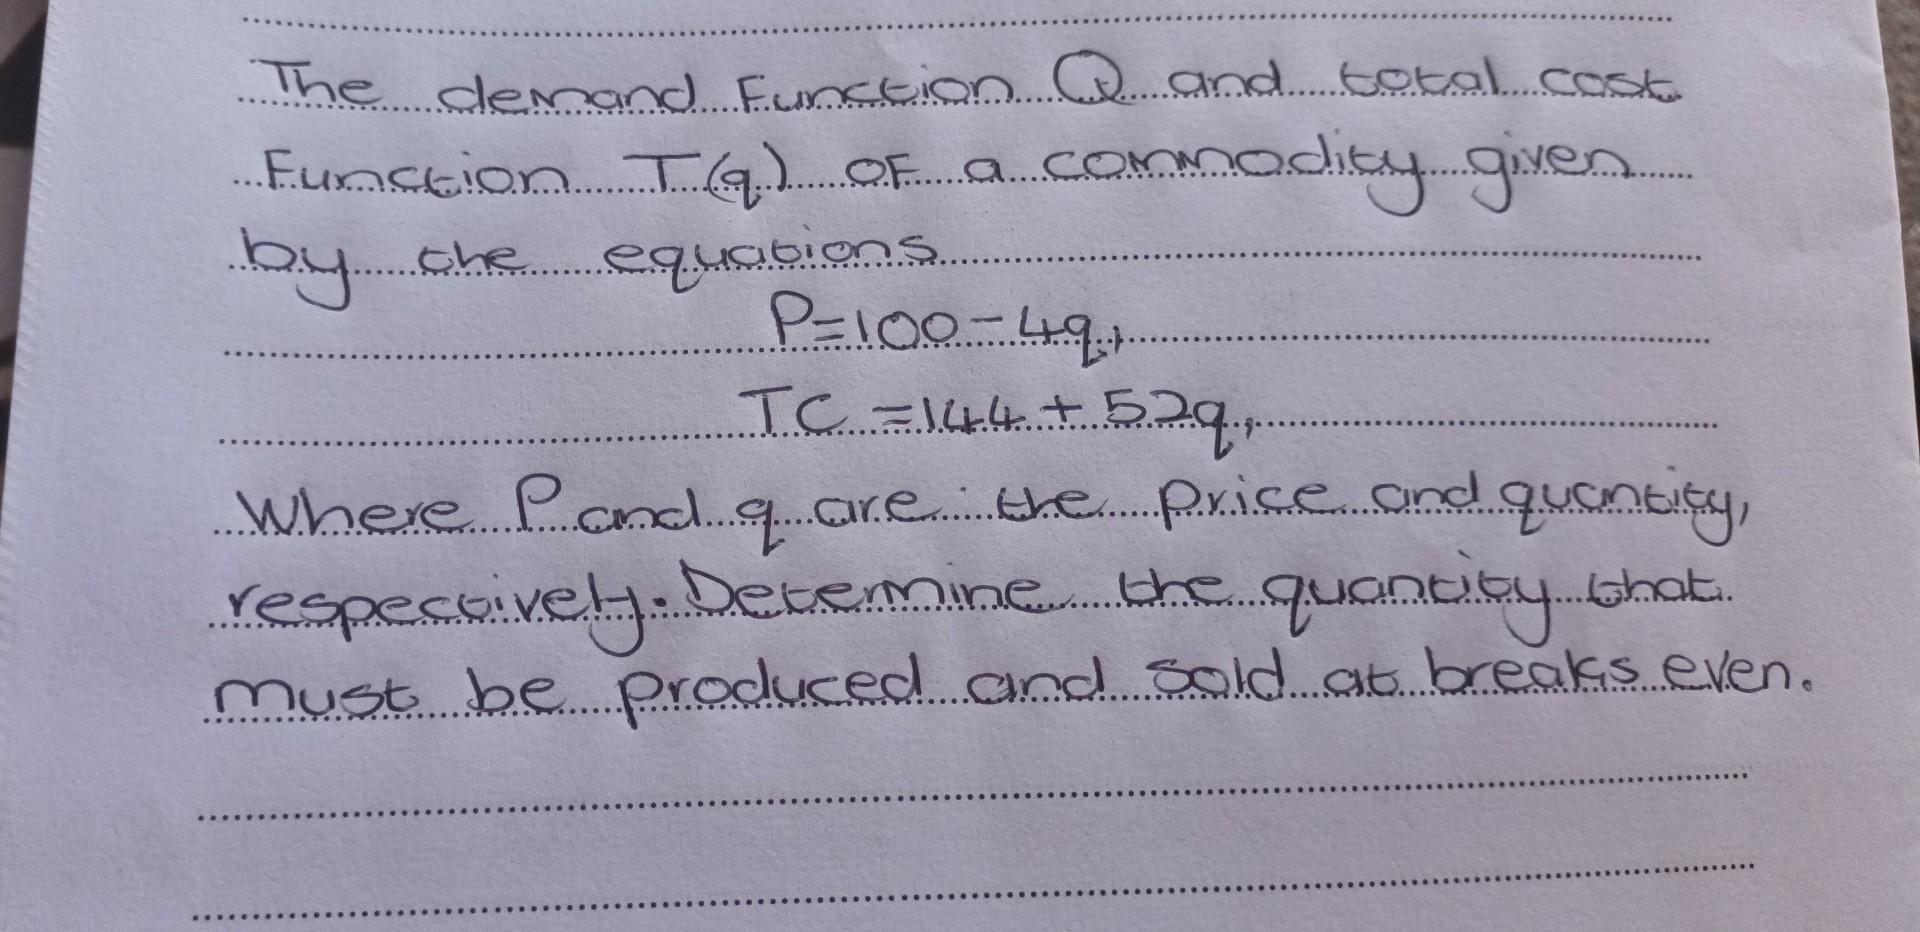 The demand Function Q and total cost
Function T(q) OF a commodity given
by the equations
P=100-4q,
TC=144+52q,
Where P and q are the price and quantity,
respectively. Determine the quantity that
must be produced and sold at breaks even.